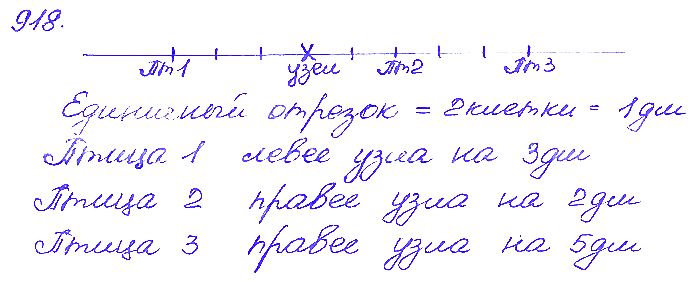 918.
Пт1 узел Пт2 Пт3
Единичный отрезок = 2клетки = 1дм
Птица 1 левее узла на 3дм
Птица 2 правее узла на 2дм
Птица 3 правее узла на 5дм